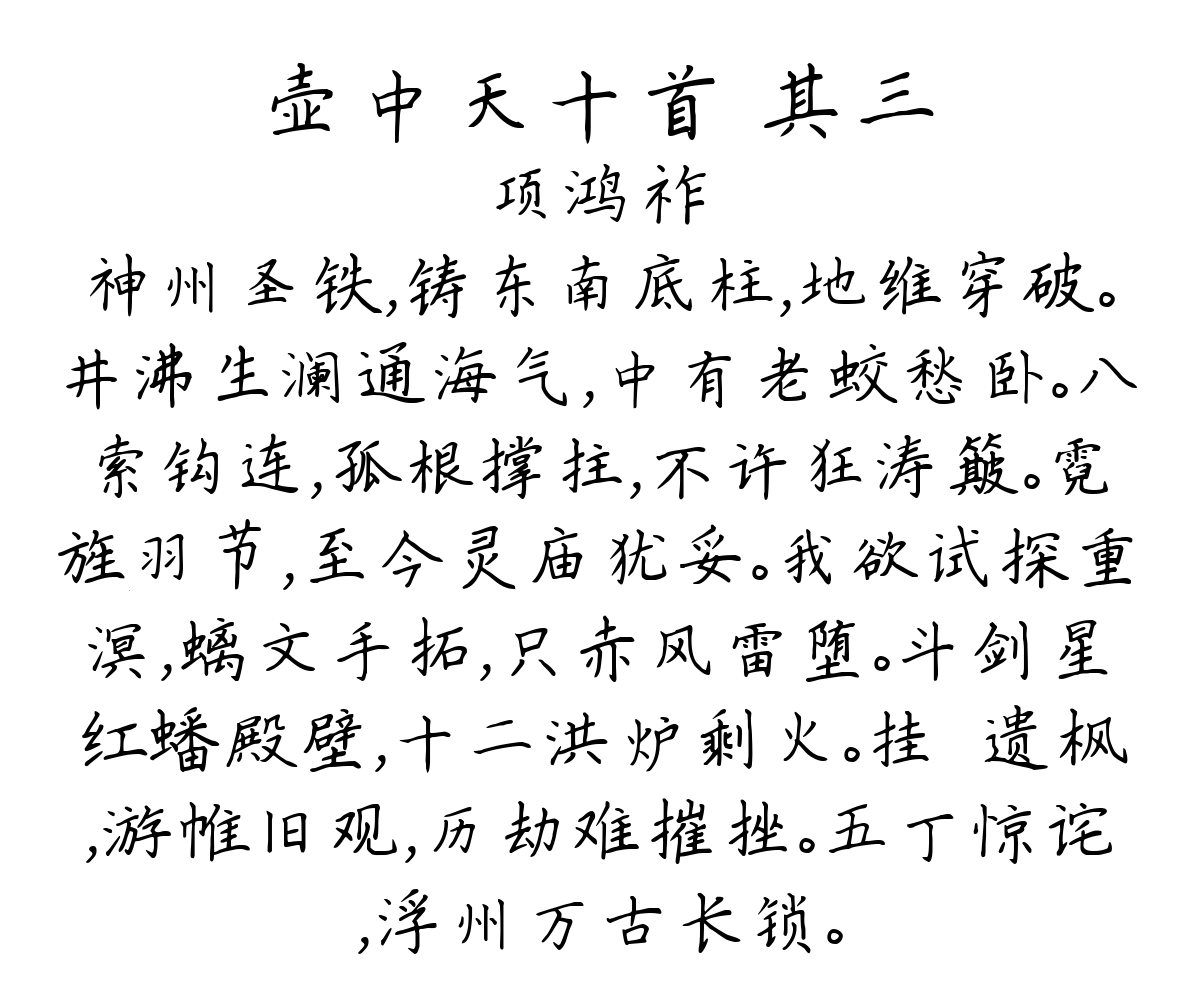 壶中天十首 其三
项鸿祚
神州圣铁,铸东南底柱,地维穿破。
井沸生澜通海气,中有老蛟愁卧。八
索钩连,孤根撑拄,不许狂涛簸。霓
旌羽节,至今灵庙犹妥。我欲试探重
溟,螭文手拓,只赤风雷堕。斗剑星
红蟠殿壁,十二洪炉剩火。挂 遗枫
,游帷旧观,历劫难摧挫。五丁惊诧
,浮州万古长锁。